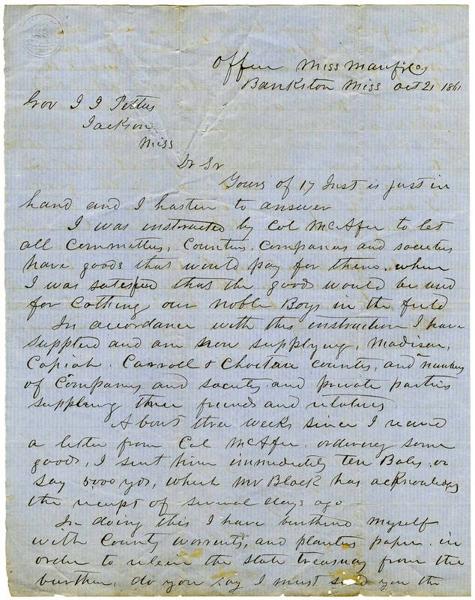 Office Miss Manufg Co
Bankston Miss Oct 21 1861
Gov J J Pettus
Jackson
Miss
Dr Sr
Yours of 17 Inst is just in
hand and I hasten to answer
I was instructed by Col McAfee to let
all Committees, Counties, Companies and societies
have goods that would pay for them, when
I was satisfied that the goods would be used
for Cothing our noble Boys in the field
In accordance with this instruction I have
supplied and am now supplying, Madison,
Copiah, Carroll & Choctaw counties, and numbers
of Companies and society and private parties
supplying there friends and relatives
About three weeks since I received
a letter from Col McAfee ordering some
goods, I sent him immediately ten Bales, or
say 5000 yds, which Mr Black has acknowledged
the receipt of several days ago
In doing this I have burthened myself
with County warrents, and planters paper in
order to releive the state treasury from the
burthen, do you say I must send you the